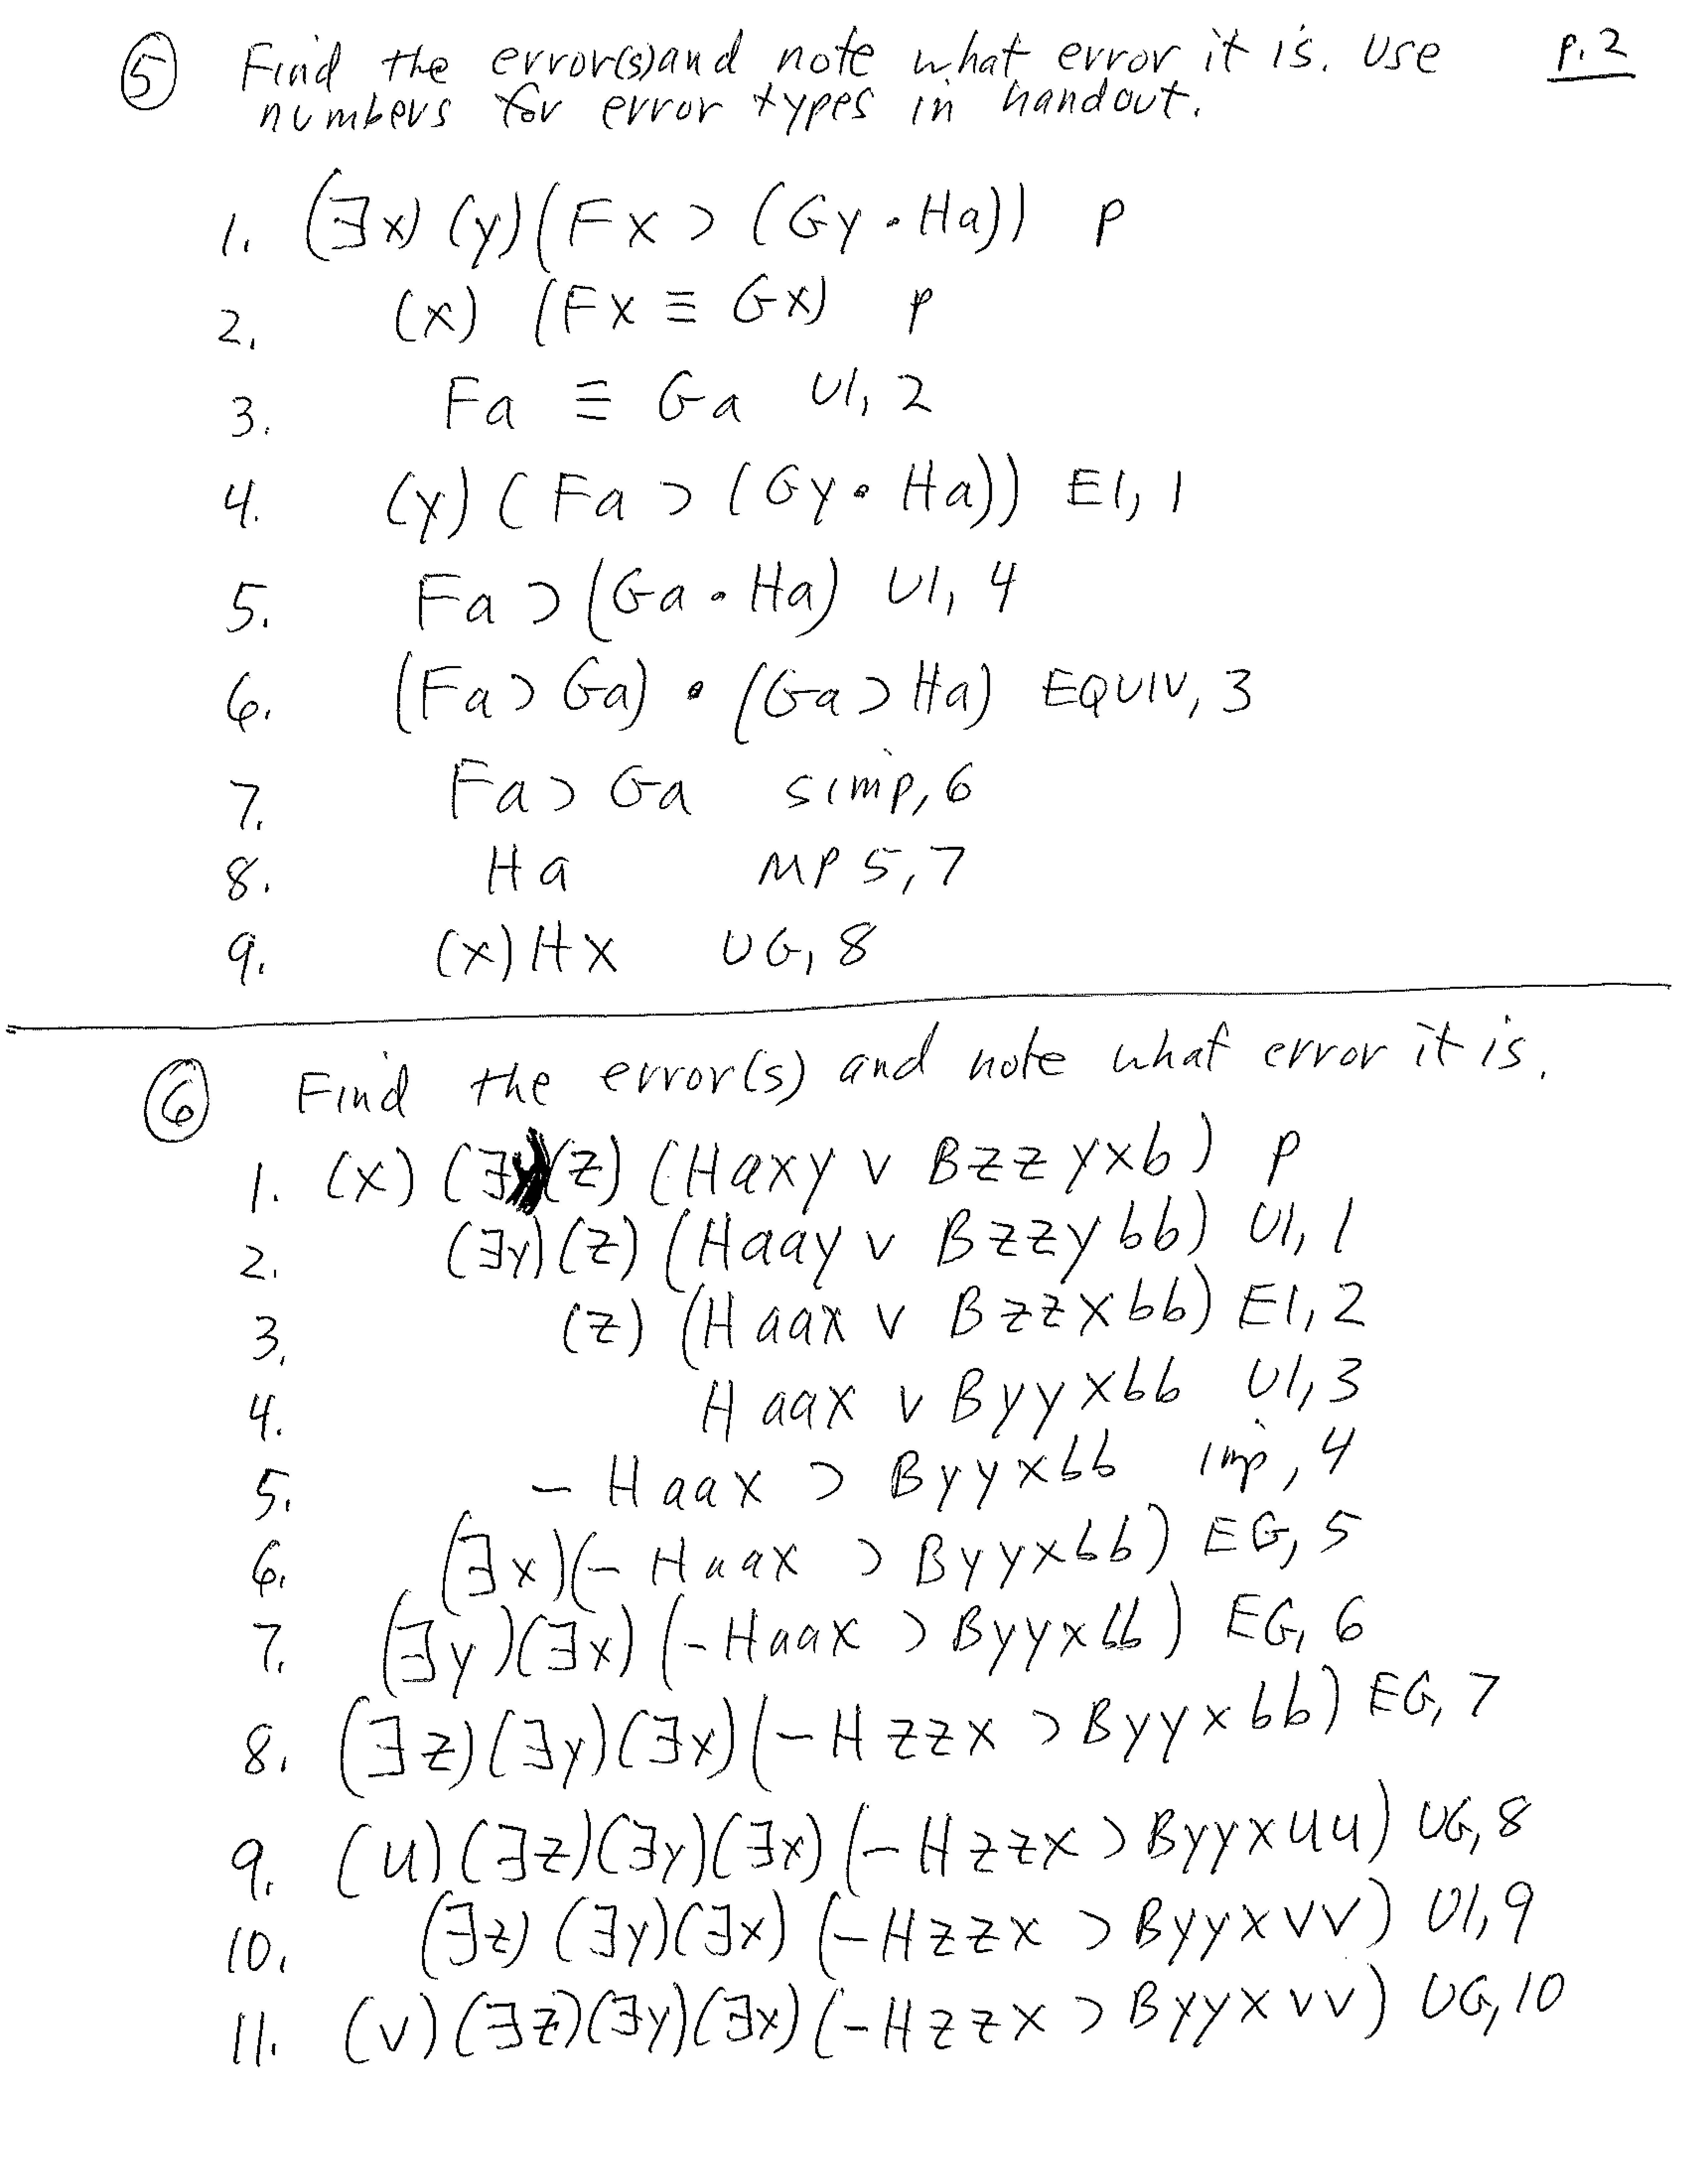 ⑤ Find the error(s) and note what error it is. Use p.2
numbers for error types in handout.
1. (∃x)(y)(Fx ⊃ (Gy • Ha)) p
2. (x) (Fx ≡ Gx) p
3. Fa ≡ Ga UI, 2
4. (y)(Fa ⊃ (Gy • Ha)) EI, 1
5. Fa ⊃ (Ga • Ha) UI, 4
6. (Fa ⊃ Ga) • (Ga ⊃ Ha) EQUIV, 3
7. Fa ⊃ Ga simp, 6
8. Ha MP 5, 7
9. (x) Hx UG, 8
⑥ Find the error(s) and note what error it is.
1. (x) (∃y)(z) (Haxy v Bzzyxb) p
2. (∃y)(z) (Haay v Bzzybb) UI, 1
3. (z) (Haax v Bzzxbb) EI, 2
4. Haax v Byyxbb UI, 3
5. - Haax ⊃ Byyxbb imp, 4
6. (∃x)(- Haax ⊃ Byyxbb) EG, 5
7. (∃y)(∃x)(- Haax ⊃ Byyxbb) EG, 6
8. (∃z)(∃y)(∃x)(- Hzzx ⊃ Byyxbb) EG, 7
9. (u)(∃z)(∃y)(∃x)(- Hzzx ⊃ Byyxuu) UG, 8
10. (∃z)(∃y)(∃x)(- Hzzx ⊃ Byyxvv) UI, 9
11. (v)(∃z)(∃y)(∃x)(- Hzzx ⊃ Byyxvv) UG, 10